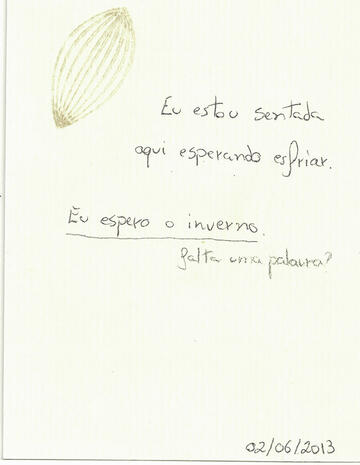 Eu estou sentada
aqui esperando esfriar.
Eu espero o inverno.
falta uma palavra?
02/06/2013